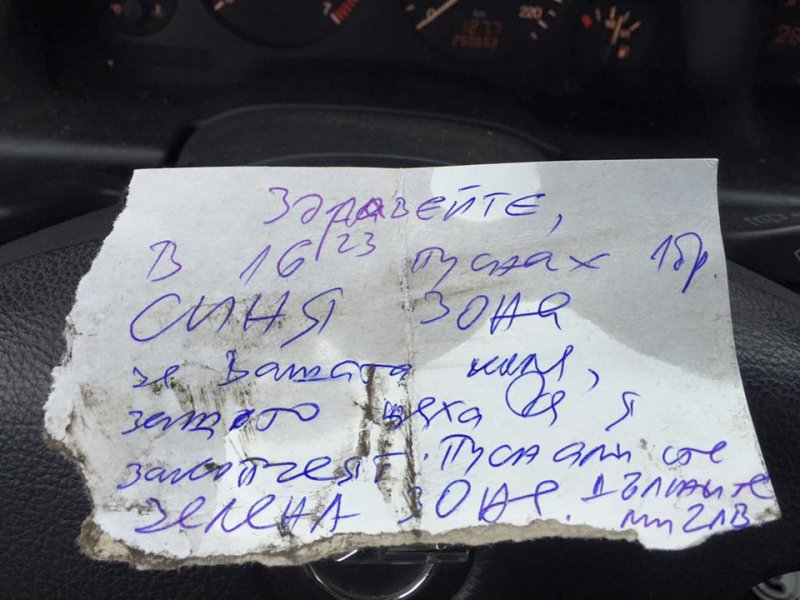 220
Здравейте,
В 16 23 пуснах 1бр.
СИНЯ ЗОНА
за Вашата кола,
защото щяха да я
закопчеят. Пускали сте
ЗЕЛЕНА ЗОНА. Дължите
ми 2лв